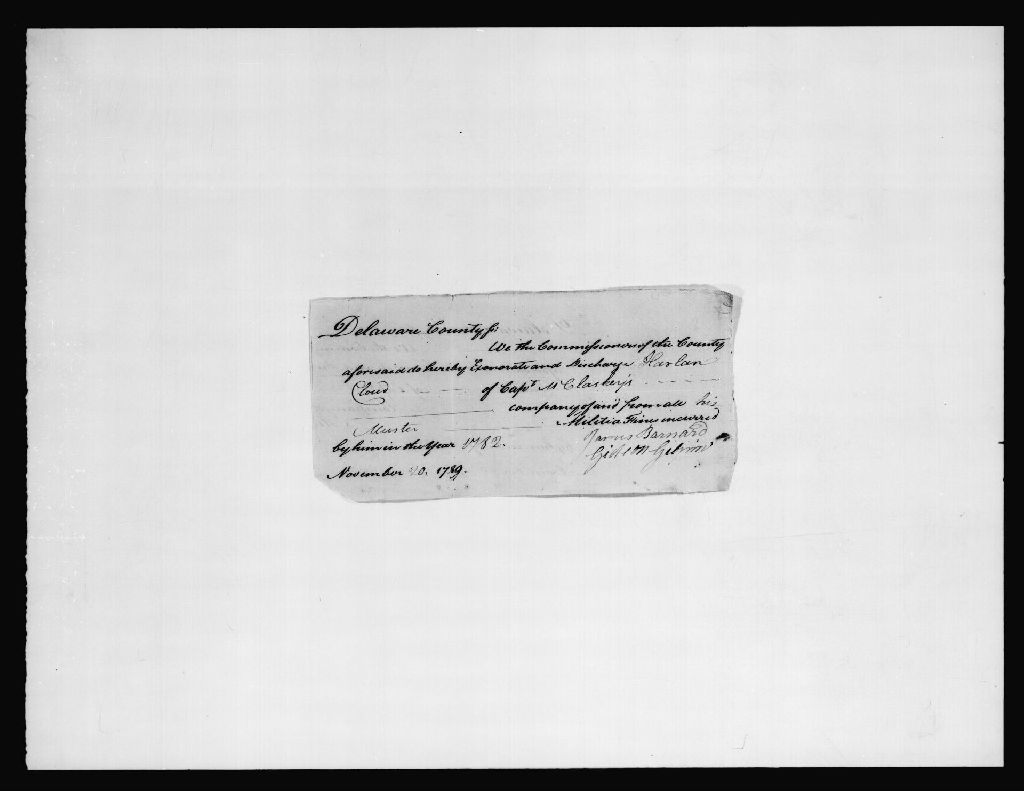 Delaware County ss
We the Commissioners of the County
aforesaid do hereby Exonorate and Discharge Harlan
Cloud - - - - of Capt McClaskey's - - - -
company of and from all his
Muster Militia Fines incurred
by him in the Year 1782.
James Barnard
Gideon Gilpin
November 20. 1789.